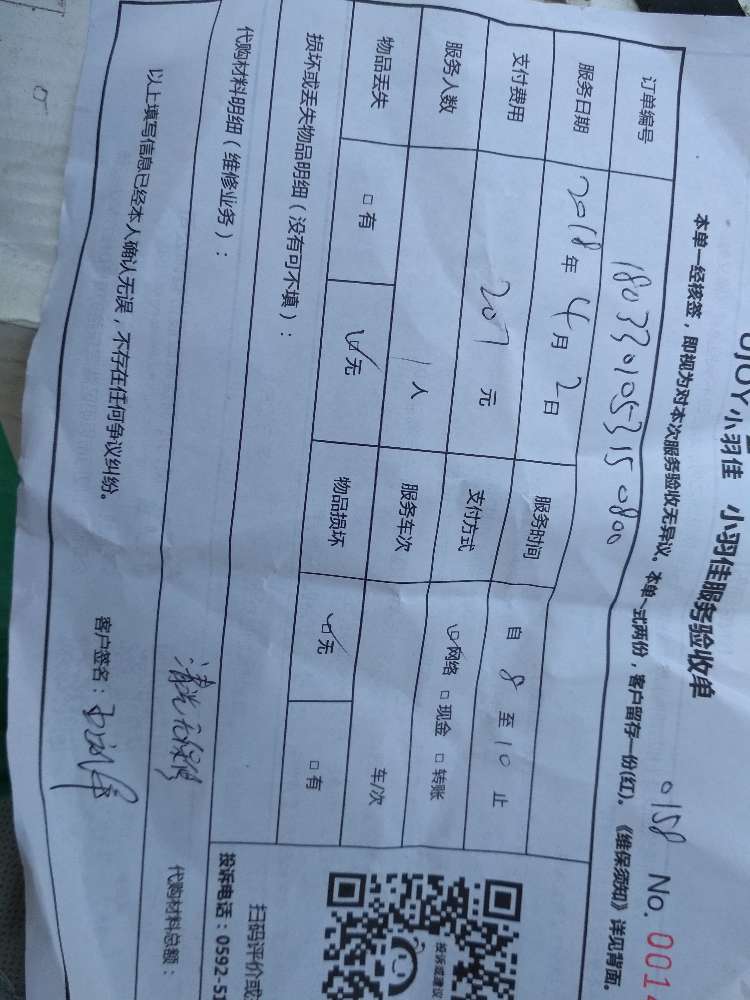 UJOY 小羽佳 小羽佳服务验收单
0158 No. 001
本单一经核签，即视为对本次服务验收无异议。本单一式两份，客户留存一份(红)。《维保须知》详见背面。
订单编号 1803301053150800
服务日期 2018年4月2日 服务时间 自 8 至 10 止
支付费用 207 元 支付方式 ☑网络 □现金 □转账
服务人数 1人 服务车次 车/次
物品丢失 □有 ☑无 物品损坏 ☑无 □有
损坏或丢失物品明细（没有可不填）：
代购材料明细（维修业务）：
代购材料总额：
以上填写信息已经本人确认无误，不存在任何争议纠纷。 客户签名：
扫码评价或
投诉电话：0592-51
投诉或建议